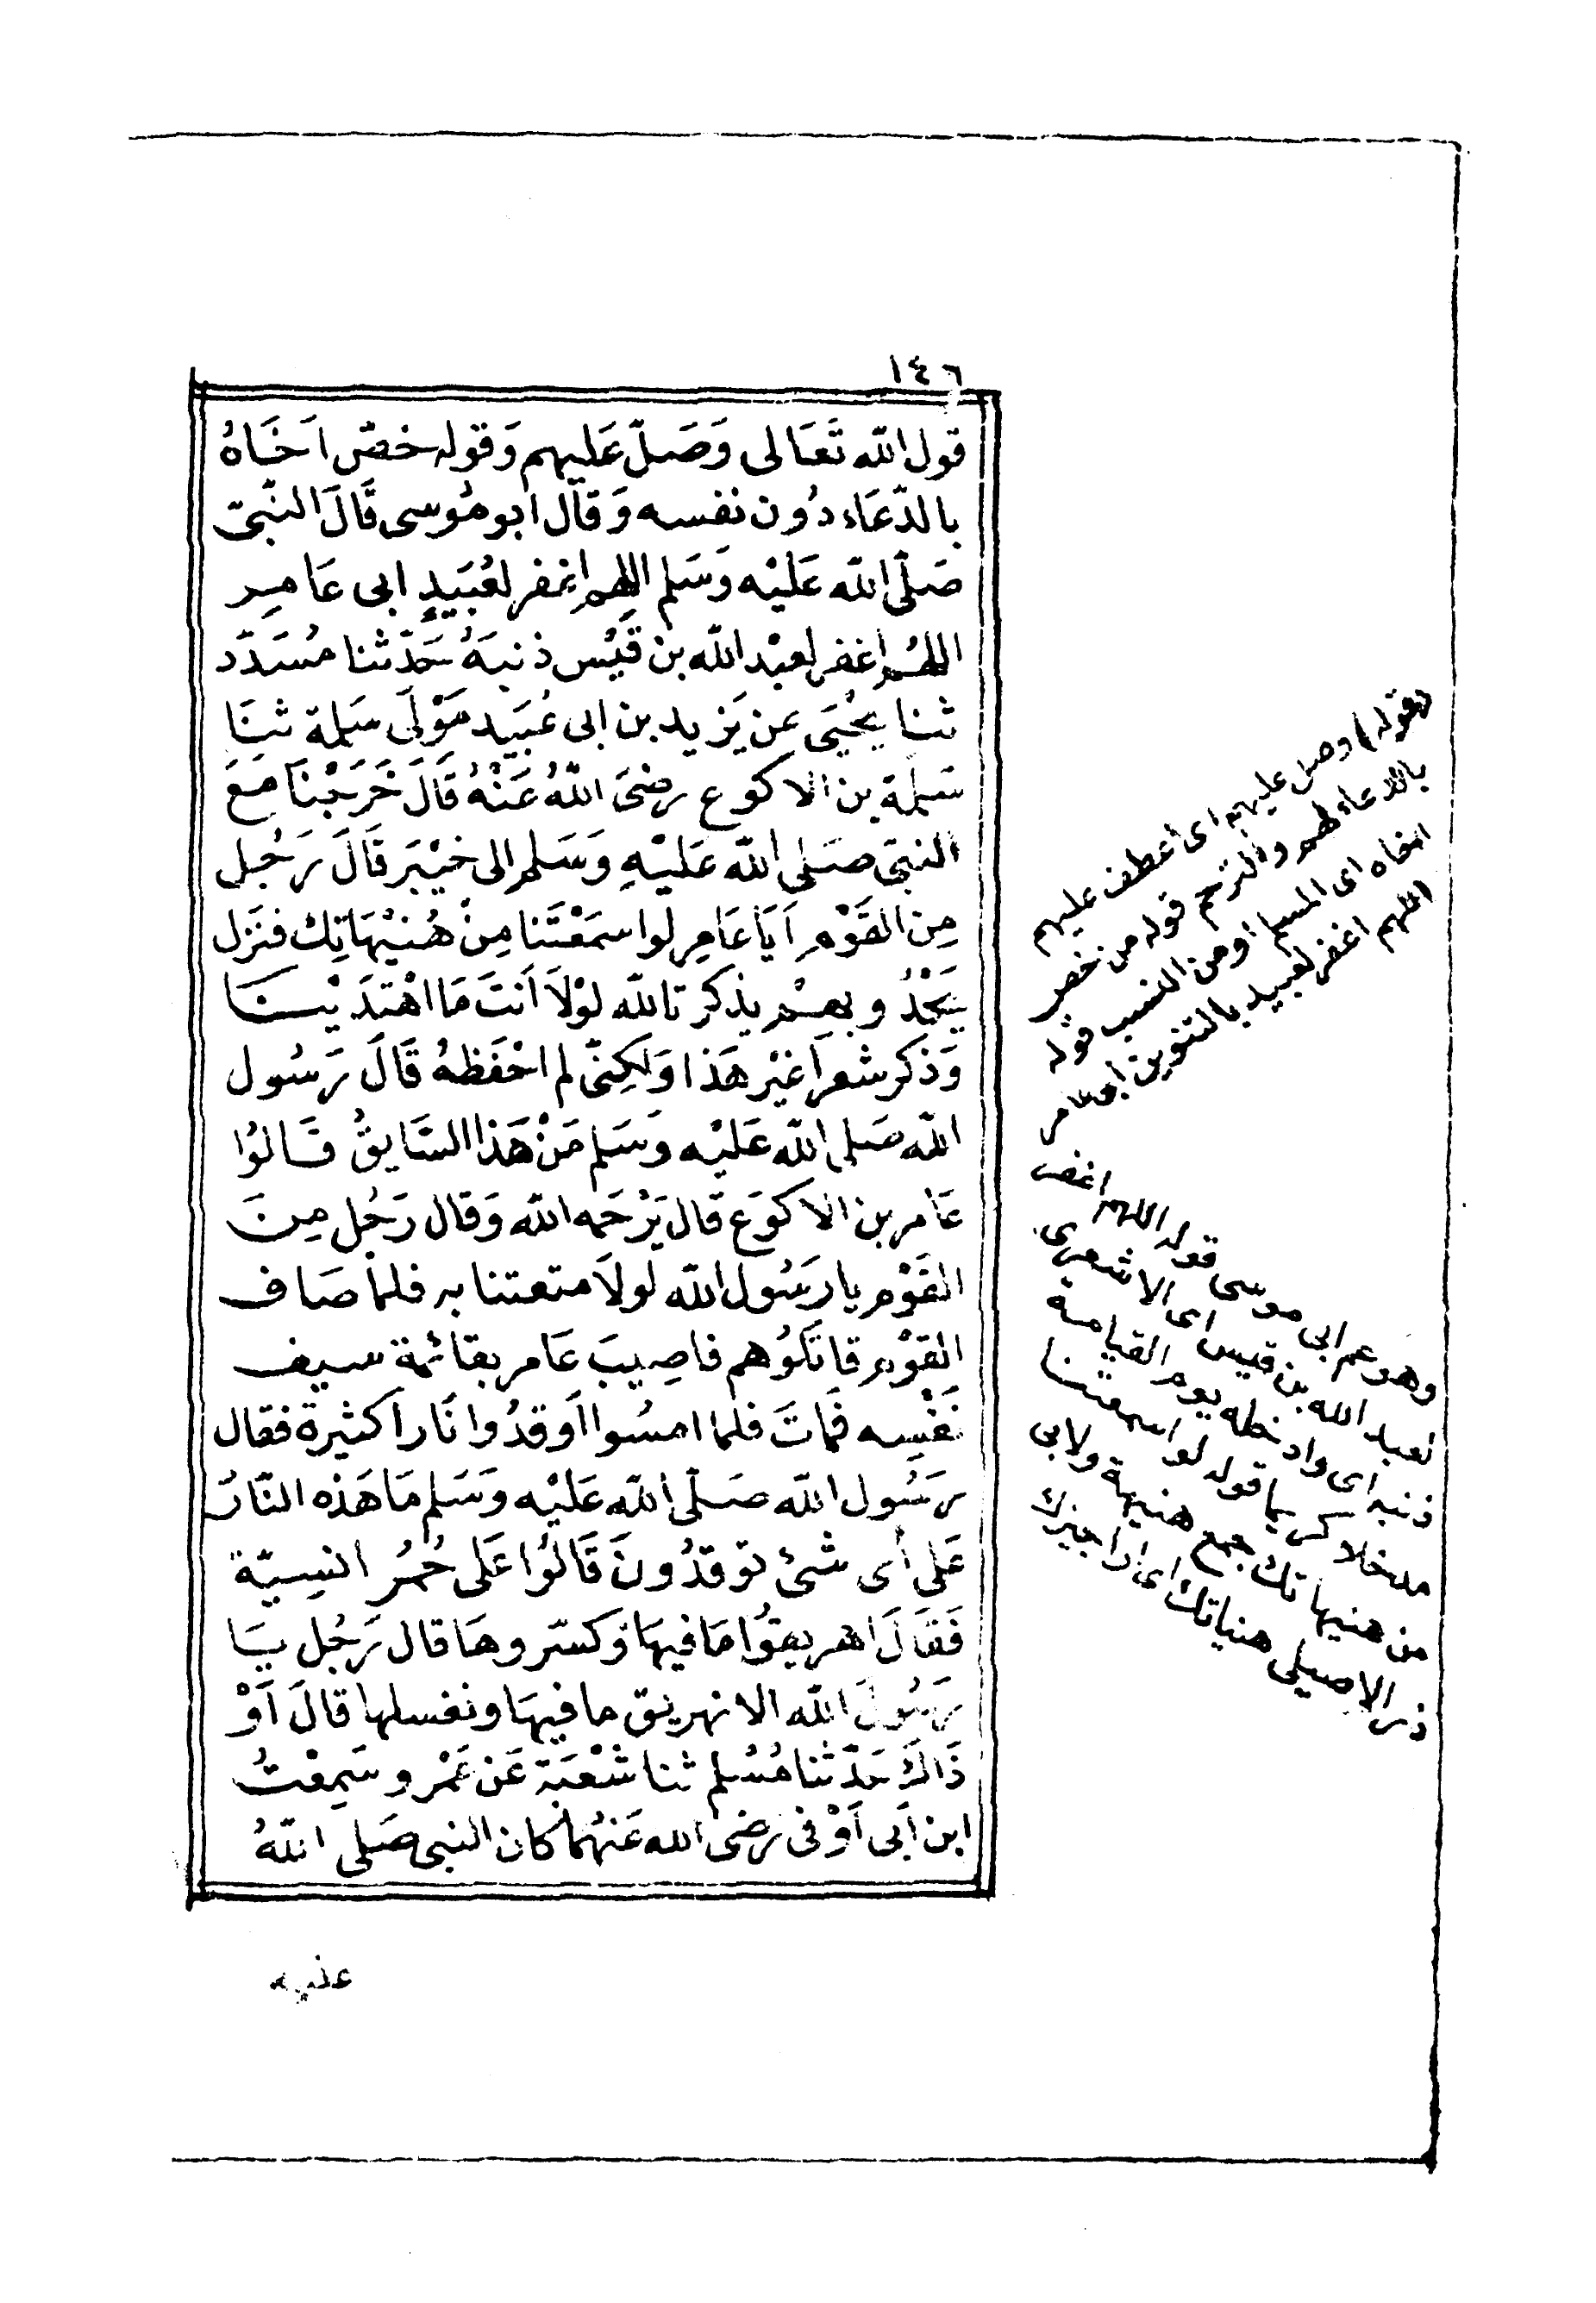 ١٤٦
قول الله تَعَالى وَصَلّ عَليهم وَقوله خصّ اَخَاهُ
بالدّعَاء دُون نفسه وَقال ابو مُوسى قَالَ النّبىّ
صَلّى الله عَليْه وَسَلم اللهم اغفر لعُبَيدٍ ابى عَامِر
اللهُم اغفر لعبْد الله بن قَيْس ذنبَهُ حَدّثنا مُسَدّد
ثنا يحْيَى عن يَزيد بن ابى عُبَيد مَوْلَى سَلمة ثنَا
سَلمة بن الاكوع رضىَ اللهُ عَنْهُ قَالَ خَرَجْنَا مَعَ
النبىّ صَلى الله عَليْهِ وَسَلم الى خيْبَر قَالَ رَجُل
مِن القَوْمِ اَيَا عَامِر لوا سمَعْتَنا مِنْ هُنَيْهَاتِك فنَزل
يَحْدُو بهِمْ يذكر تالله لوْلاَ اَنتَ مَا اهْتدَيْنَا
وَذكر شعراً غيْر هَذا وَلكِنىّ لم احْفَظهُ قَالَ رَسُول
الله صَلى الله عَليْه وَسَلم مَنْ هَذا السَّايقُ قَالوُا
عَامر بن الاكوَع قال يَرْحَمه الله وَقال رَجُل مِنَ
القَوْم يا رَسُول الله لولاَ متعتنا به فلما صَاف
القوْم قاتلوُهم فاصِيبَ عَامر بقائمة سيف
نَفْسِه فمَاتَ فلما امسُوا اَوقدُوا نَاراً كثيرة فقال
رَسُول الله صَلّى الله عَليْه وَسَلم مَا هَذه النّارُ
عَلى أى شئ توقدُونَ قَالوُا عَلى حُمُر انسِيّة
فَقَالَ اهريقوُا مَا فيهَا وَكسّروهَا قال رَجُل يَا
رَسُولَ الله الا نهريق ما فيهَا ونغسلها قالَ اَوْ
ذَاكَ حَدّثنا مُسْلم ثنا شُعْبَة عَن عَمْرو سَمِعْتُ
ابن اَبى اَوْفى رضى الله عَنهُما كان النبى صَلى اللهُ
(قوله) وصل عليهم اى اعطف عليهم
بالدعاء لهم والترحم قوله من خص
اخاه اى المسلم او من النسب قوله
اللهم اغفر لعبيد بالتنوين ابى عامر
وهو عم ابى موسى قوله اللهم اغفر
لعبد الله بن قيس اى الاشعرى
ذنبه اى وادخله يوم القيامة
مدخلا كريما قوله لو اسمعتنا
من هنيهاتك جمع هنيهة ولابى
ذر الاصيلى هنياتك اى اراجيزك
عليه